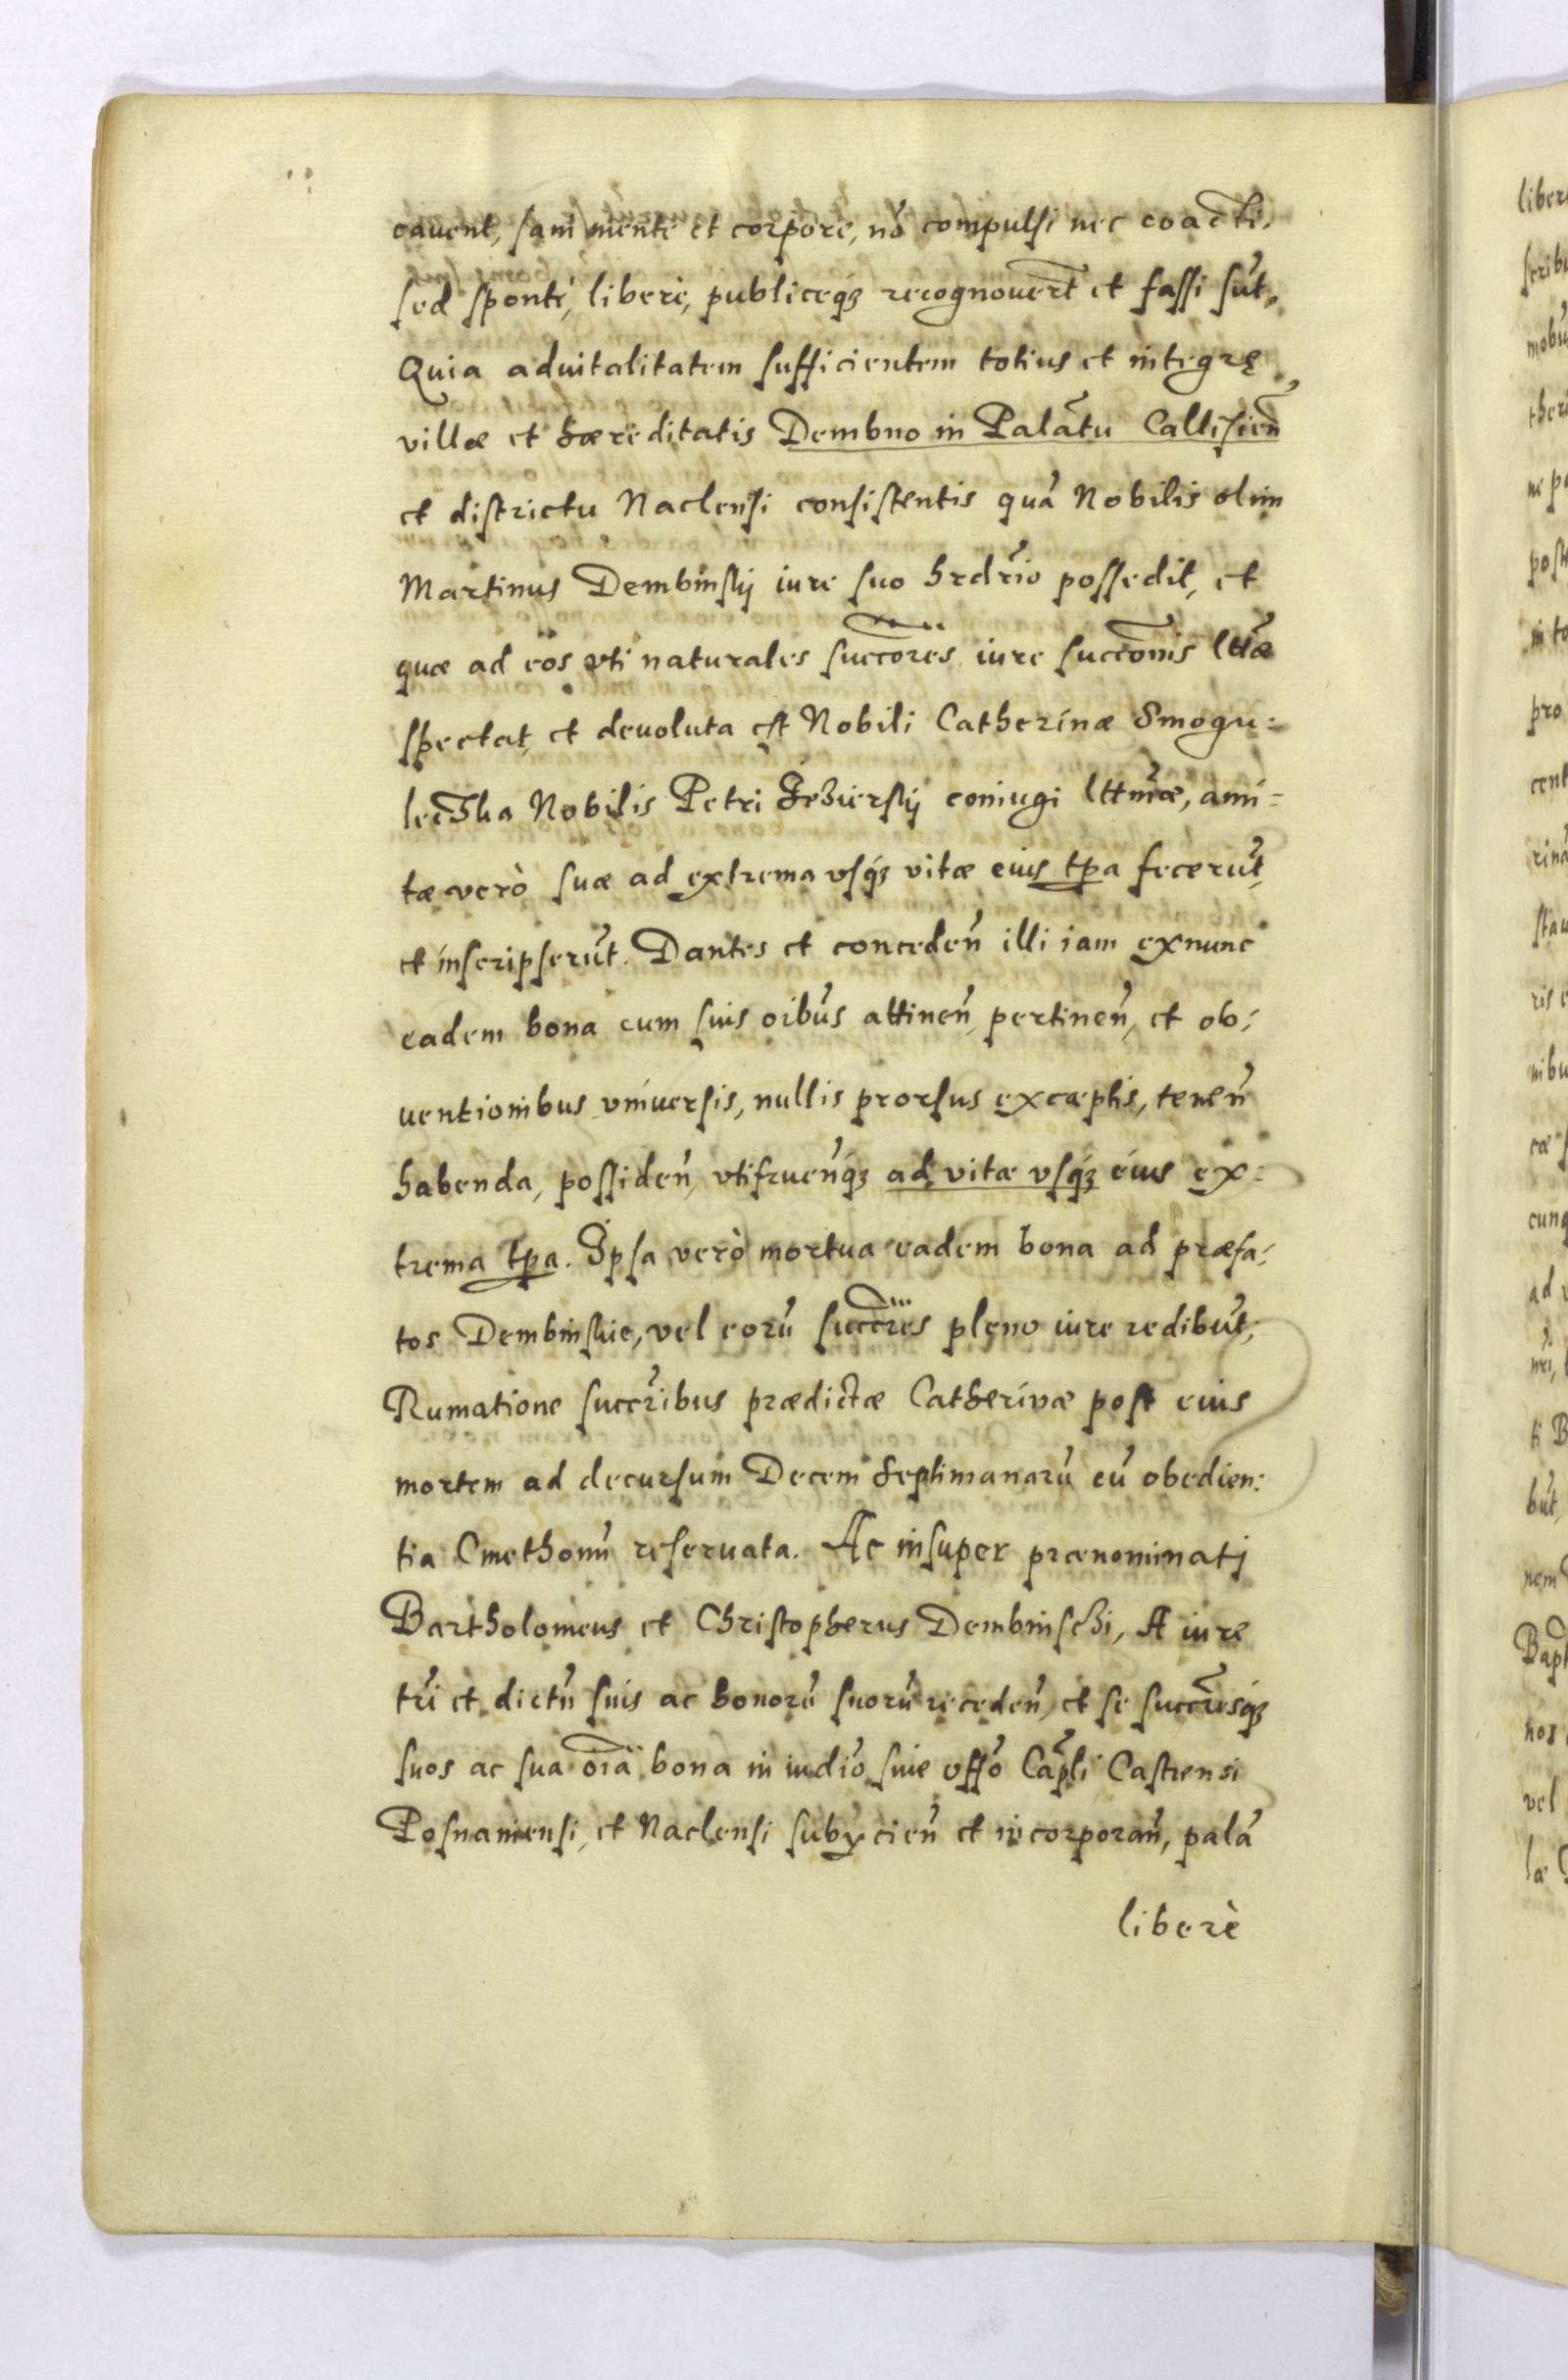 cavent, sani mente et corpore, nō compulsi nec coacti,
sed sponte, liberè, publiceq́ꝫ recognouert̄ et fassi sūt,
Quia aduitalitatem sufficientem totius et integrę
villæ et hæreditatis Dembno in Palātu Callisień
et districtu Naclensi consistentis quā Nobilis olim
Martinus Dembinskij iure suo hrdrio possedit, et
quæ ad eos vti naturales succores iure succonis lttæ
spectat, et deuoluta est Nobili Catherinæ Smogu:
lecżka Nobilis Petri Jezierskij coniugi lttmæ, ami=
tæ verò suæ ad extrema vsq́ꝫ vitæ eius tpa fecerūt,
et inscripserūt. Dantes et conceden̄ illi iam exnunc
eadem bona cum suis oibus attinen̄, pertinen̄, et ob:
uentionibus vniuersis, nullis prorsus excæptis, tenen̄
habenda, possiden̄, vtifruen̄q́ꝫ ad vitæ vsq́ꝫ eius ex=
trema tpa. Ipsa verò mortua eadem bona ad præfa:
tos Dembinskie, vel eorū succres pleno iure redibūt,
Rumatione succribus prædictæ Catherinæ post eius
mortem ad decursum Decem septimanarū cū obedien:
tia Cmethonū reseruata. Ac insuper prænominatj
Bartholomeus et Christopherus Dembinschi, A iure
tri et dictū suis ac bonorū suorū receden̄, et se succresq́ꝫ
suos ac sua oia bona in iudio siue offo Capli Castrensi
Posnaniensi, et Naclensi subycien̄ et incorporan̄, palā
liberè